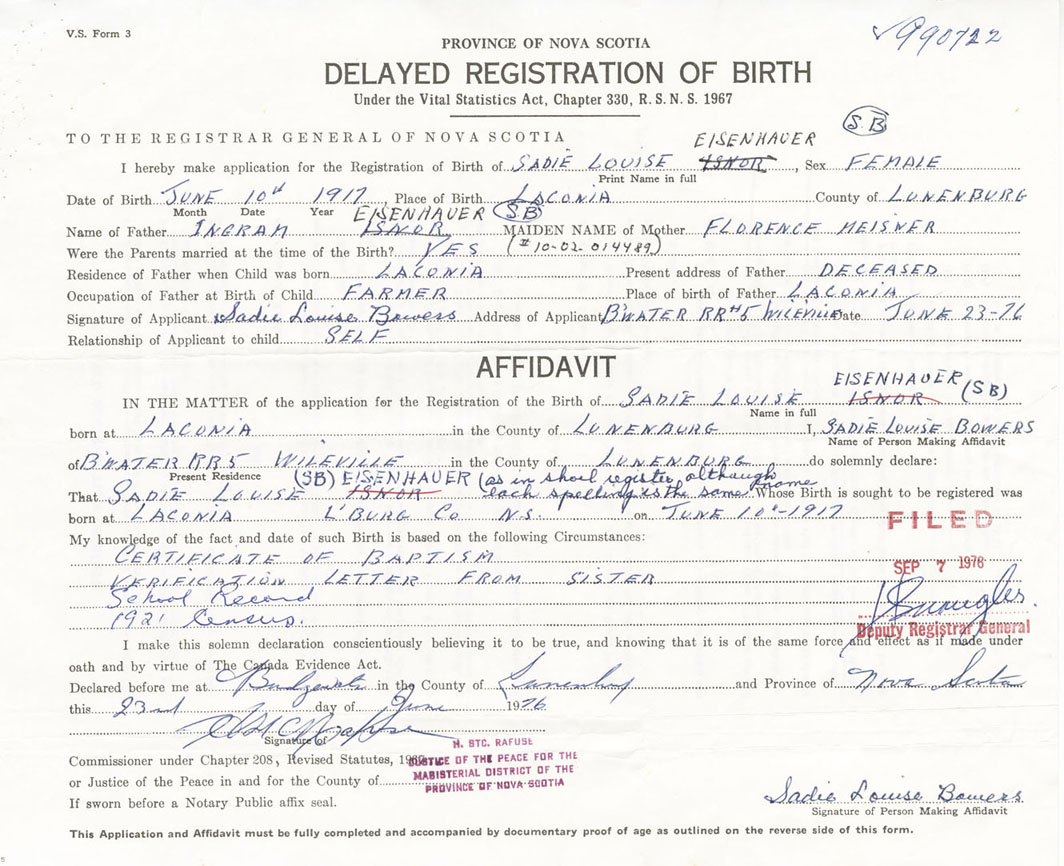 V.S. Form 3
990722
PROVINCE OF NOVA SCOTIA
DELAYED REGISTRATION OF BIRTH
Under the Vital Statistics Act, Chapter 330, R.S.N.S. 1967
S.B
TO THE REGISTRAR GENERAL OF NOVA SCOTIA
EISENHAUER
I hereby make application for the Registration of Birth of SADIE LOUISE ISNOR, Sex FEMALE
Print Name in full
Date of Birth JUNE 10th 1917, Place of Birth LACONIA County of LUNENBURG
Month Date Year EISENHAUER S.B
Name of Father INGRAM ISNOR MAIDEN NAME of Mother FLORENCE MEISNER
Were the Parents married at the time of the Birth? YES (#10-02-014489)
Residence of Father when Child was born LACONIA Present address of Father DECEASED
Occupation of Father at Birth of Child FARMER Place of birth of Father LACONIA
Signature of Applicant Sadie Louise Bowers Address of Applicant B'WATER RR#5 WILEVILLE Date JUNE 23-76
Relationship of Applicant to child SELF
AFFIDAVIT
EISENHAUER (SB)
IN THE MATTER of the application for the Registration of the Birth of SADIE LOUISE ISNOR
Name in full
born at LACONIA in the County of LUNENBURG I, SADIE LOUISE BOWERS
Name of Person Making Affidavit
of B'WATER RR5 WILEVILLE in the County of LUNENBURG do solemnly declare:
Present Residence (SB) EISENHAUER (as in school register, although name
That SADIE LOUISE ISNOR each spelling is the same. Whose Birth is sought to be registered was
born at LACONIA L'BURG CO N.S. on JUNE 10th-1917
FILED
My knowledge of the fact and date of such Birth is based on the following Circumstances:
CERTIFICATE OF BAPTISM
SEP 7 1976
VERIFICATION LETTER FROM SISTER
School Record
1921 Census.
Deputy Registrar General
I make this solemn declaration conscientiously believing it to be true, and knowing that it is of the same force and effect as if made under
oath and by virtue of The Canada Evidence Act.
Declared before me at Bridgewater in the County of Lunenburg and Province of Nova Scotia
this 23rd day of June 1976
Signature of
H. STC. RAFUSE
Commissioner under Chapter 208, Revised Statutes,
JUSTICE OF THE PEACE FOR THE
MAGISTERIAL DISTRICT OF THE
or Justice of the Peace in and for the County of
PROVINCE OF NOVA SCOTIA
Sadie Louise Bowers
If sworn before a Notary Public affix seal.
Signature of Person Making Affidavit
This Application and Affidavit must be fully completed and accompanied by documentary proof of age as outlined on the reverse side of this form.